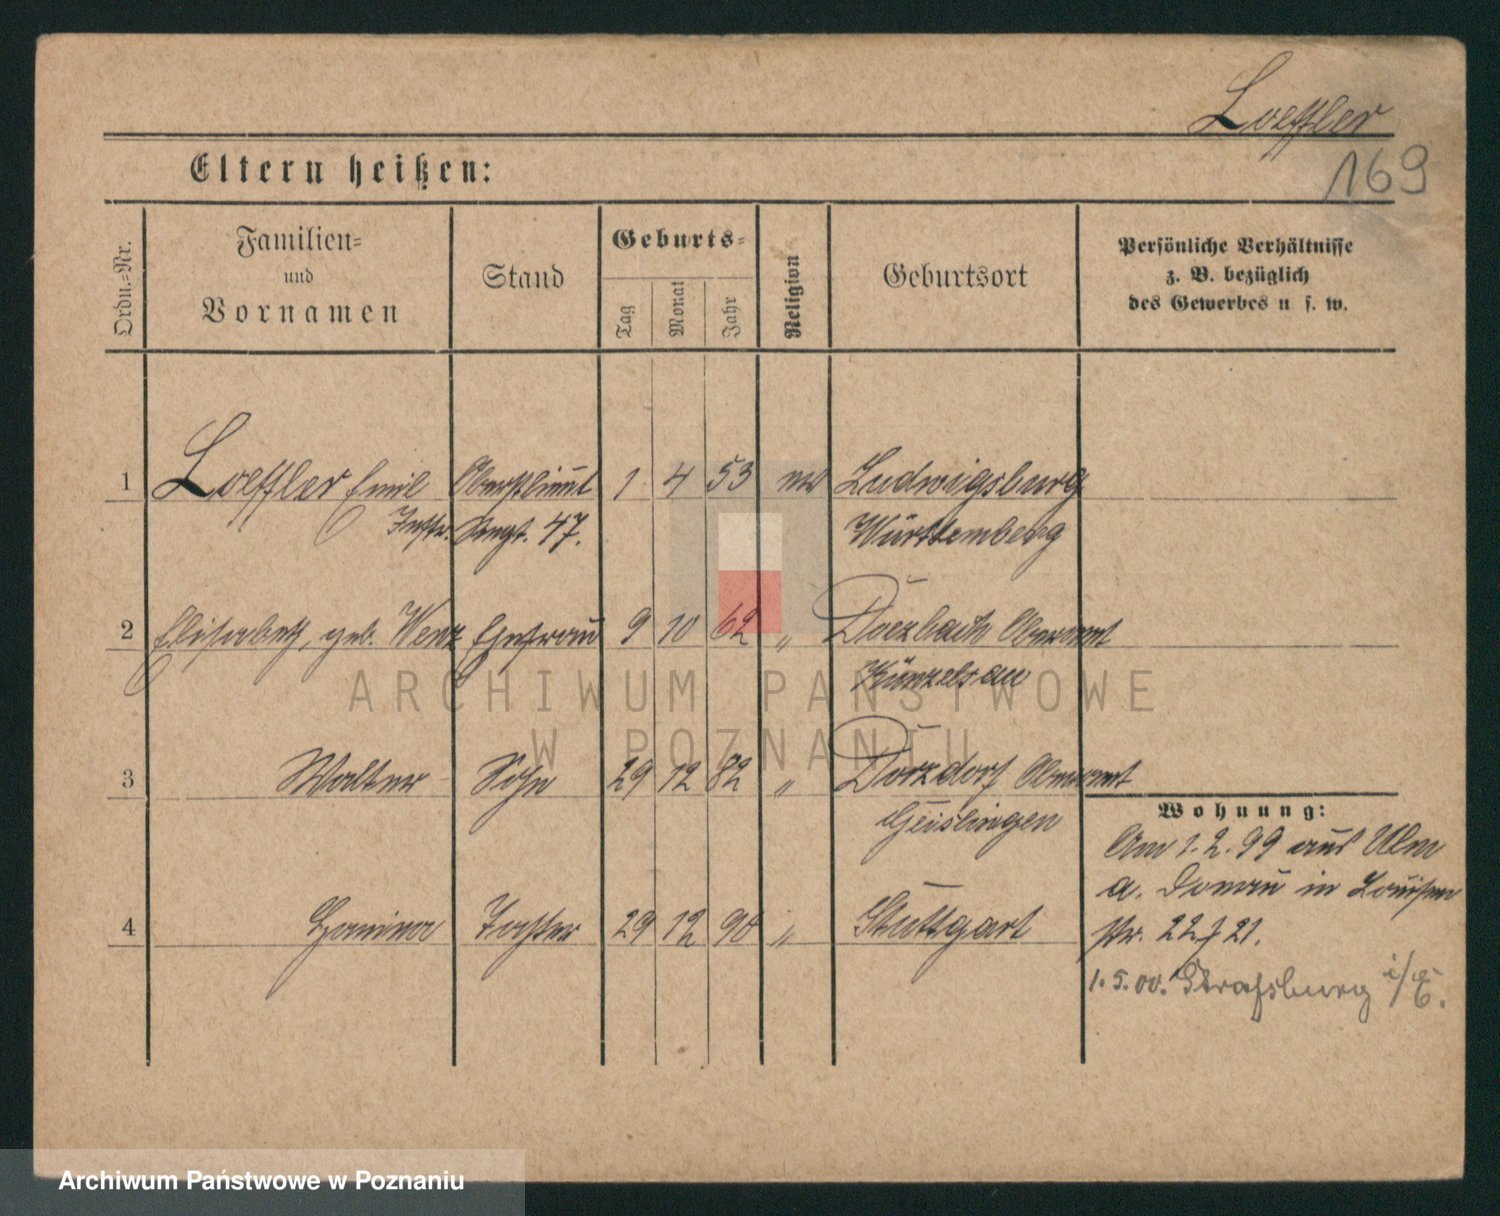 Loeffler
169
Eltern heißen:
Ordn.-Nr.
Familien-
und
Vornamen
Stand
Geburts-
Tag
Monat
Jahr
Religion
Geburtsort
Persönliche Verhältnisse
z. B. bezüglich
des Gewerbes u. s. w.
1 Loeffler Emil Oberstlieut 1 4 53 ev Ludwigsburg
Inftr. Regt. 47. Württemberg
2 Elisabeth, geb. Wenz Ehefrau 9 10 62 " Doerzbach Oberamt
Künzelsau
3 Walter Sohn 29 12 82 " Oberamt
Geislingen
4 Tochter 29 12 90 " Stuttgart
Wohnung:
Am 1.2.99 aus Ulm
a. Donau in Louisen
str. 22 21.
1.5.00. Strassburg i/E.
ARCHIWUM PAŃSTWOWE
W POZNANIU
Archiwum Państwowe w Poznaniu